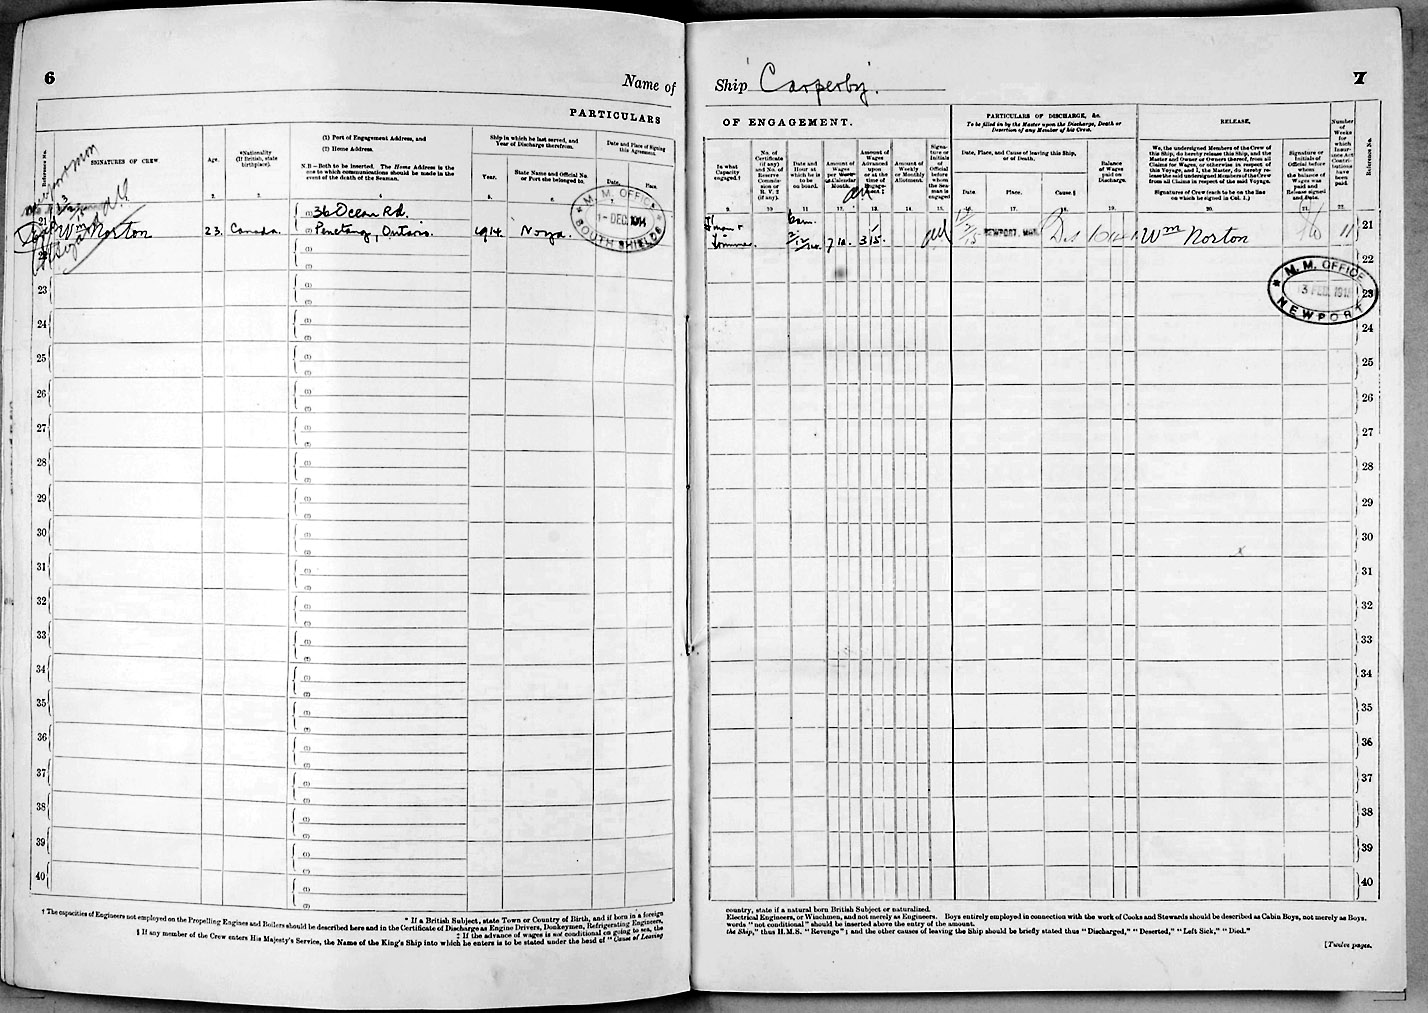 6
Name of
PARTICULARS
Reference No.
SIGNATURES OF CREW
Age.
*Nationality
(If British, state
birthplace).
(1) Port of Engagement Address, and
(2) Home Address.
N.B.—Both to be inserted. The Home Address is the
one to which communications should be made in the
event of the death of the Seaman.
Ship in which he last served, and
Year of Discharge therefrom.
Year.
State Name and Official No.
or Port she belonged to.
Date and Place of Signing
this Agreement.
Date.
Place.
21
Wm Norton
23.
Canada.
(1) 36 Ocean Rd.
(2) Penetang, Ontario.
1914.
M. M. OFFICE
1- DEC. 1914
SOUTH SHIELDS
23
24
25
26
27
28
29
30
31
32
33
34
35
36
37
38
39
40
† The capacities of Engineers not employed on the Propelling Engines and Boilers should be described here and in the Certificate of Discharge as Engine Drivers, Donkeymen, Refrigerating Engineers,
* If a British Subject, state Town or Country of Birth, and if born in a foreign
‡ If the advance of wages is not conditional on going to sea, the
§ If any member of the Crew enters His Majesty's Service, the Name of the King's Ship into which he enters is to be stated under the head of "Cause of Leaving
Ship Carperby.
7
OF ENGAGEMENT.
PARTICULARS OF DISCHARGE, &c.
To be filled in by the Master upon the Discharge, Death or
Desertion of any Member of his Crew.
RELEASE.
In what
Capacity
engaged.†
No. of
Certificate
(if any)
and No. of
Reserve
Commis-
sion or
R. V. 2
(if any).
Date and
Hour at
which he is
to be
on board.
Amount of
Wages
per Week or
Calendar
Month.
Amount of
Wages
Advanced
upon
or at the
time of
Engage-
ment.‡
Amount of
Weekly
or Monthly
Allotment.
Signa-
ture or
Initials
of
Official
before
whom
the Sea-
man is
engaged
Date, Place, and Cause of leaving this Ship,
or of Death.
Date.
Place.
Cause.§
Balance
of Wages
paid on
Discharge.
We, the undersigned Members of the Crew of
this Ship, do hereby release this Ship, and the
Master and Owner or Owners thereof, from all
Claims for Wages, or otherwise in respect of
this Voyage, and I, the Master, do hereby re-
lease the undersigned Members of the Crew
from all Claims in respect of the said Voyage.
Signatures of Crew (each to be on the line
on which he signed in Col. 1.)
Signature or
Initials of
Official before
whom
the balance of
Wages was
paid and
Release signed
and Date.
Number
of
Weeks
for
which
Insur-
ance Act
Contri-
butions
have
been
paid.
Reference No.
NEWPORT, MON.
Dis
Wm Norton
11
21
22
M. M. OFFICE
3 FEB. 1915
NEWPORT
23
24
25
26
27
28
29
30
31
32
33
34
35
36
37
38
39
40
country, state if a natural born British Subject or naturalized.
Electrical Engineers, or Winchmen, and not merely as Engineers. Boys entirely employed in connection with the work of Cooks and Stewards should be described as Cabin Boys, not merely as Boys.
words "not conditional" should be inserted above the entry of the amount.
the Ship," thus H.M.S. "Revenge"; and the other causes of leaving the Ship should be briefly stated thus "Discharged," "Deserted," "Left Sick," "Died."
[Twelve pages.